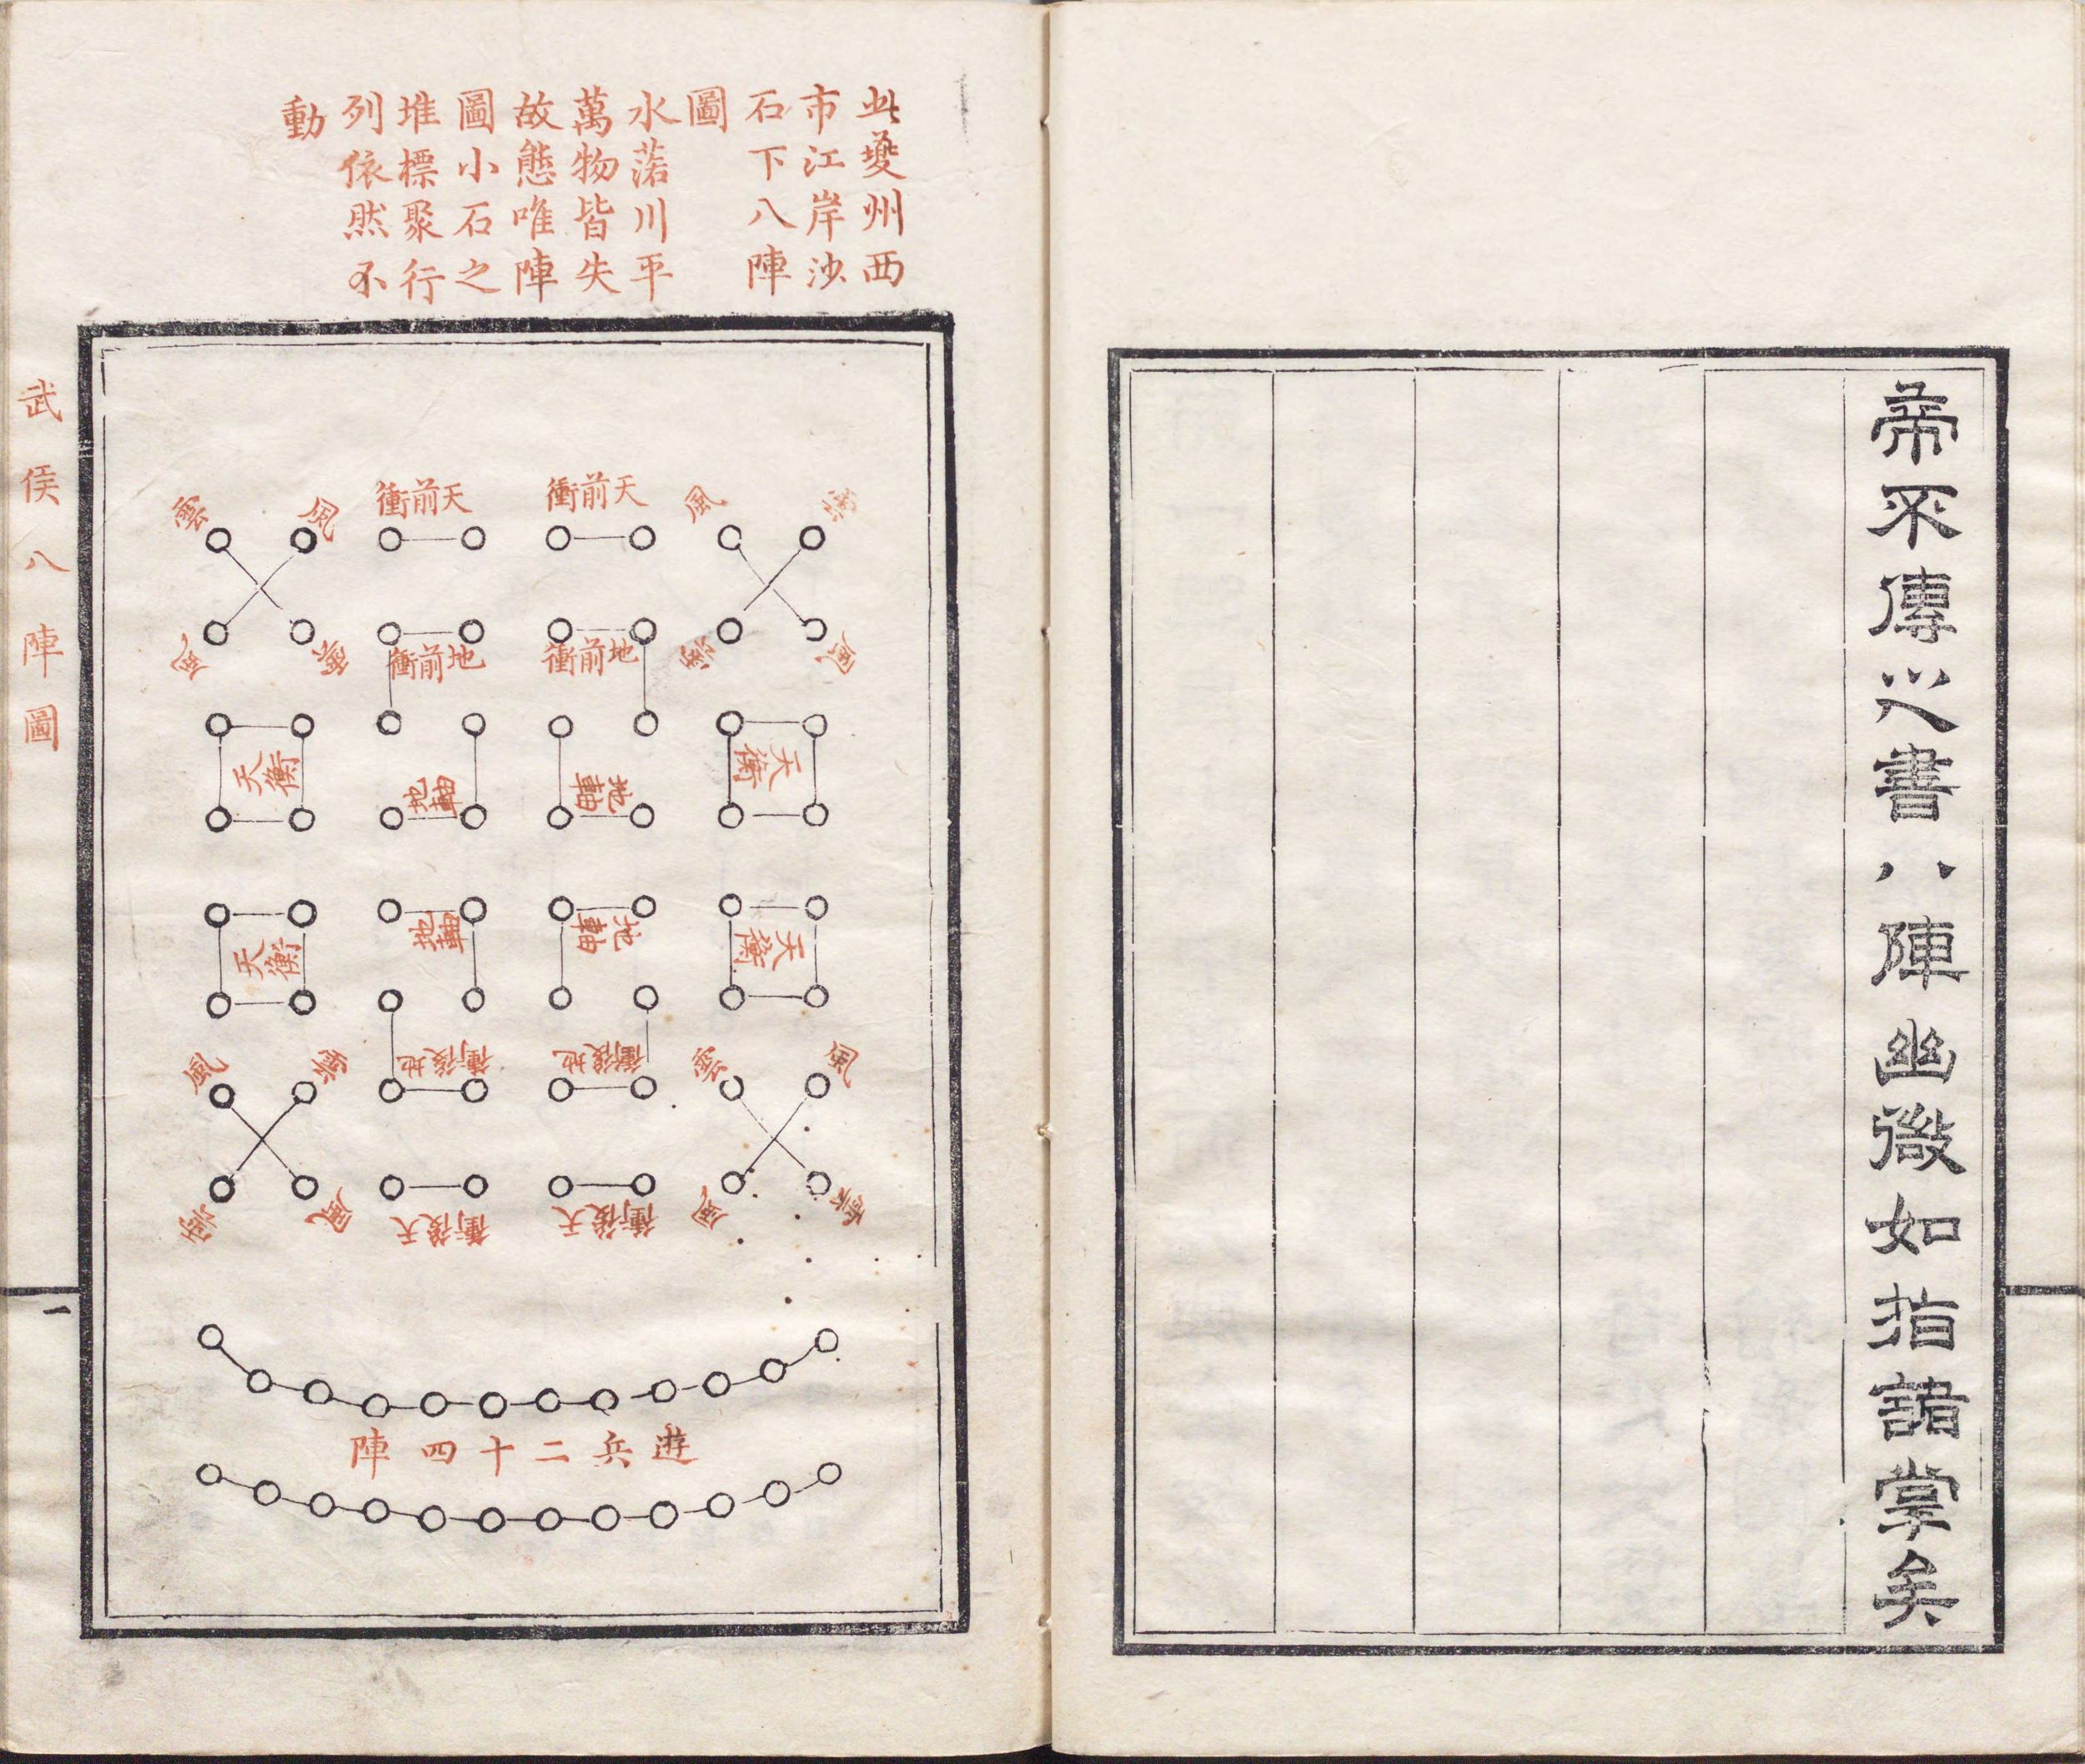 帝不傳之書八陣幽微如指諸掌矣
此夔州西
市江岸沙
石下八陣
圖
水落川平
萬物皆失
故態唯陣
圖小石之
堆標聚行
列依然不
動
雲 風 天前衝 天前衝 風 雲
風 雲 地前衝 地前衝 雲 風
天衡 地軸 地軸 天衡
天衡 地軸 地軸 天衡
風 雲 地後衝 地後衝 雲 風
雲 風 天後衝 天後衝 風 雲
遊兵二十四陣
武侯八陣圖
一